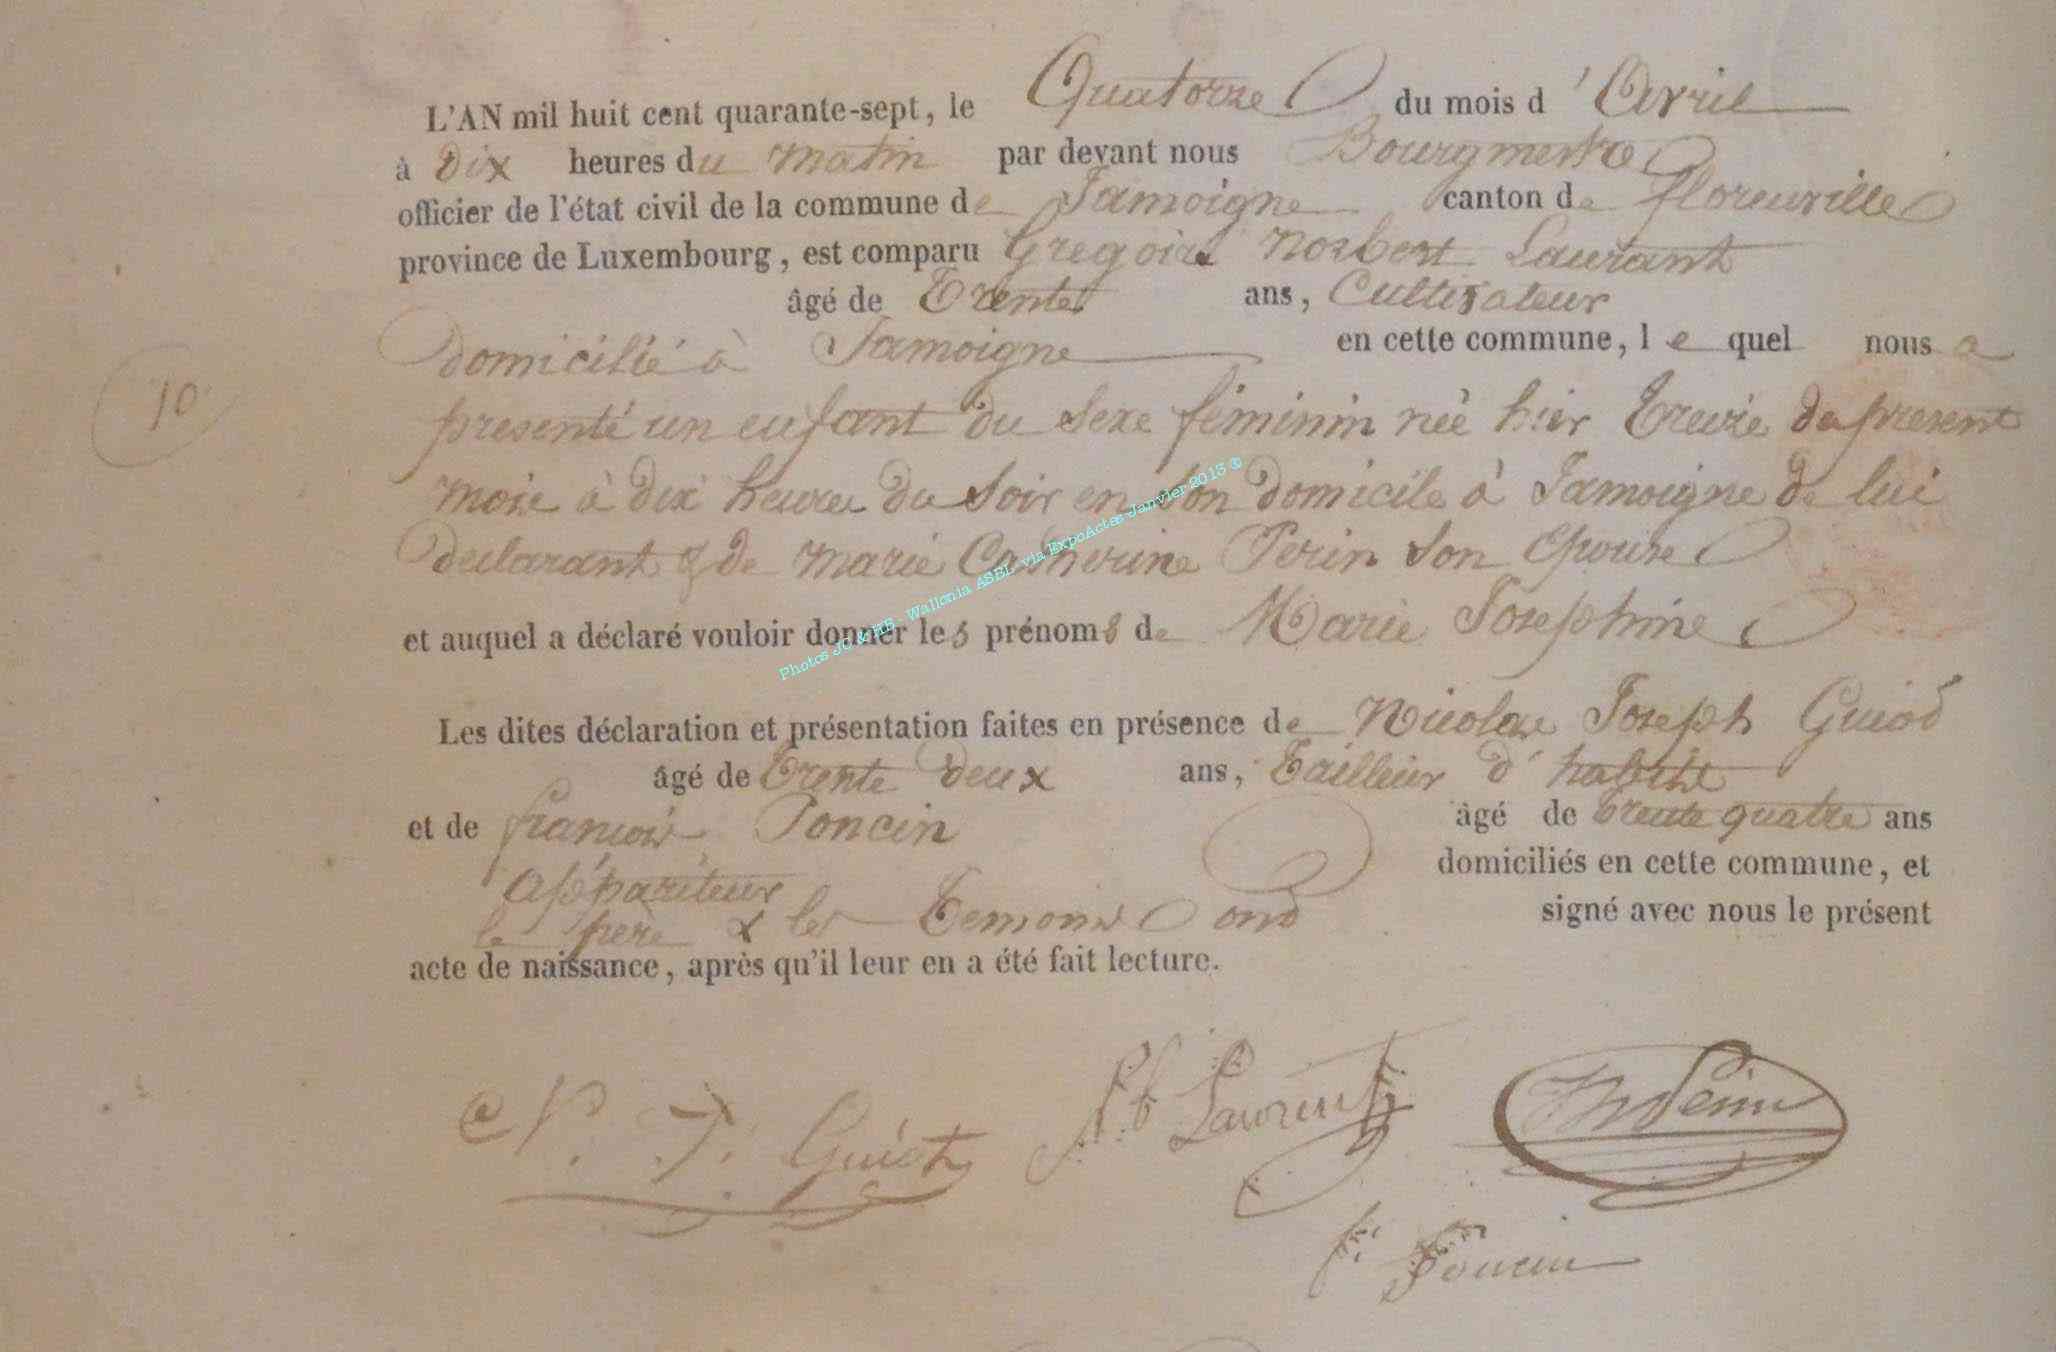 L'AN mil huit cent quarante-sept, le Quatorze du mois d'Avril
à dix heures du matin par devant nous Bourgmestre
officier de l'état civil de la commune de Jamoigne canton de florenville
province de Luxembourg, est comparu Gregoire Norbert Laurant
âgé de Trente ans, Cultivateur
domicilié à Jamoigne en cette commune, le quel nous a
10
presenté un enfant du sexe féminin née hier Treize du present
mois à dix heures du soir en son domicile à Jamoigne de lui
declarant & de Marie Catherine Perin son Epouse
et auquel a déclaré vouloir donner les prénoms de Marie Josephine
Les dites déclaration et présentation faites en présence de Nicolas Joseph Guiot
âgé de Trente deux ans, Tailleur d'habits
et de francois Poncin âgé de trente quatre ans
appariteur domiciliés en cette commune, et
le père & les Temoins ont signé avec nous le présent
acte de naissance, après qu'il leur en a été fait lecture.
N. J. Guiot Laurent
f. Poncin
Photos JC & HB - Wallonia ASBL via ExpoActes Janvier 2013 ®